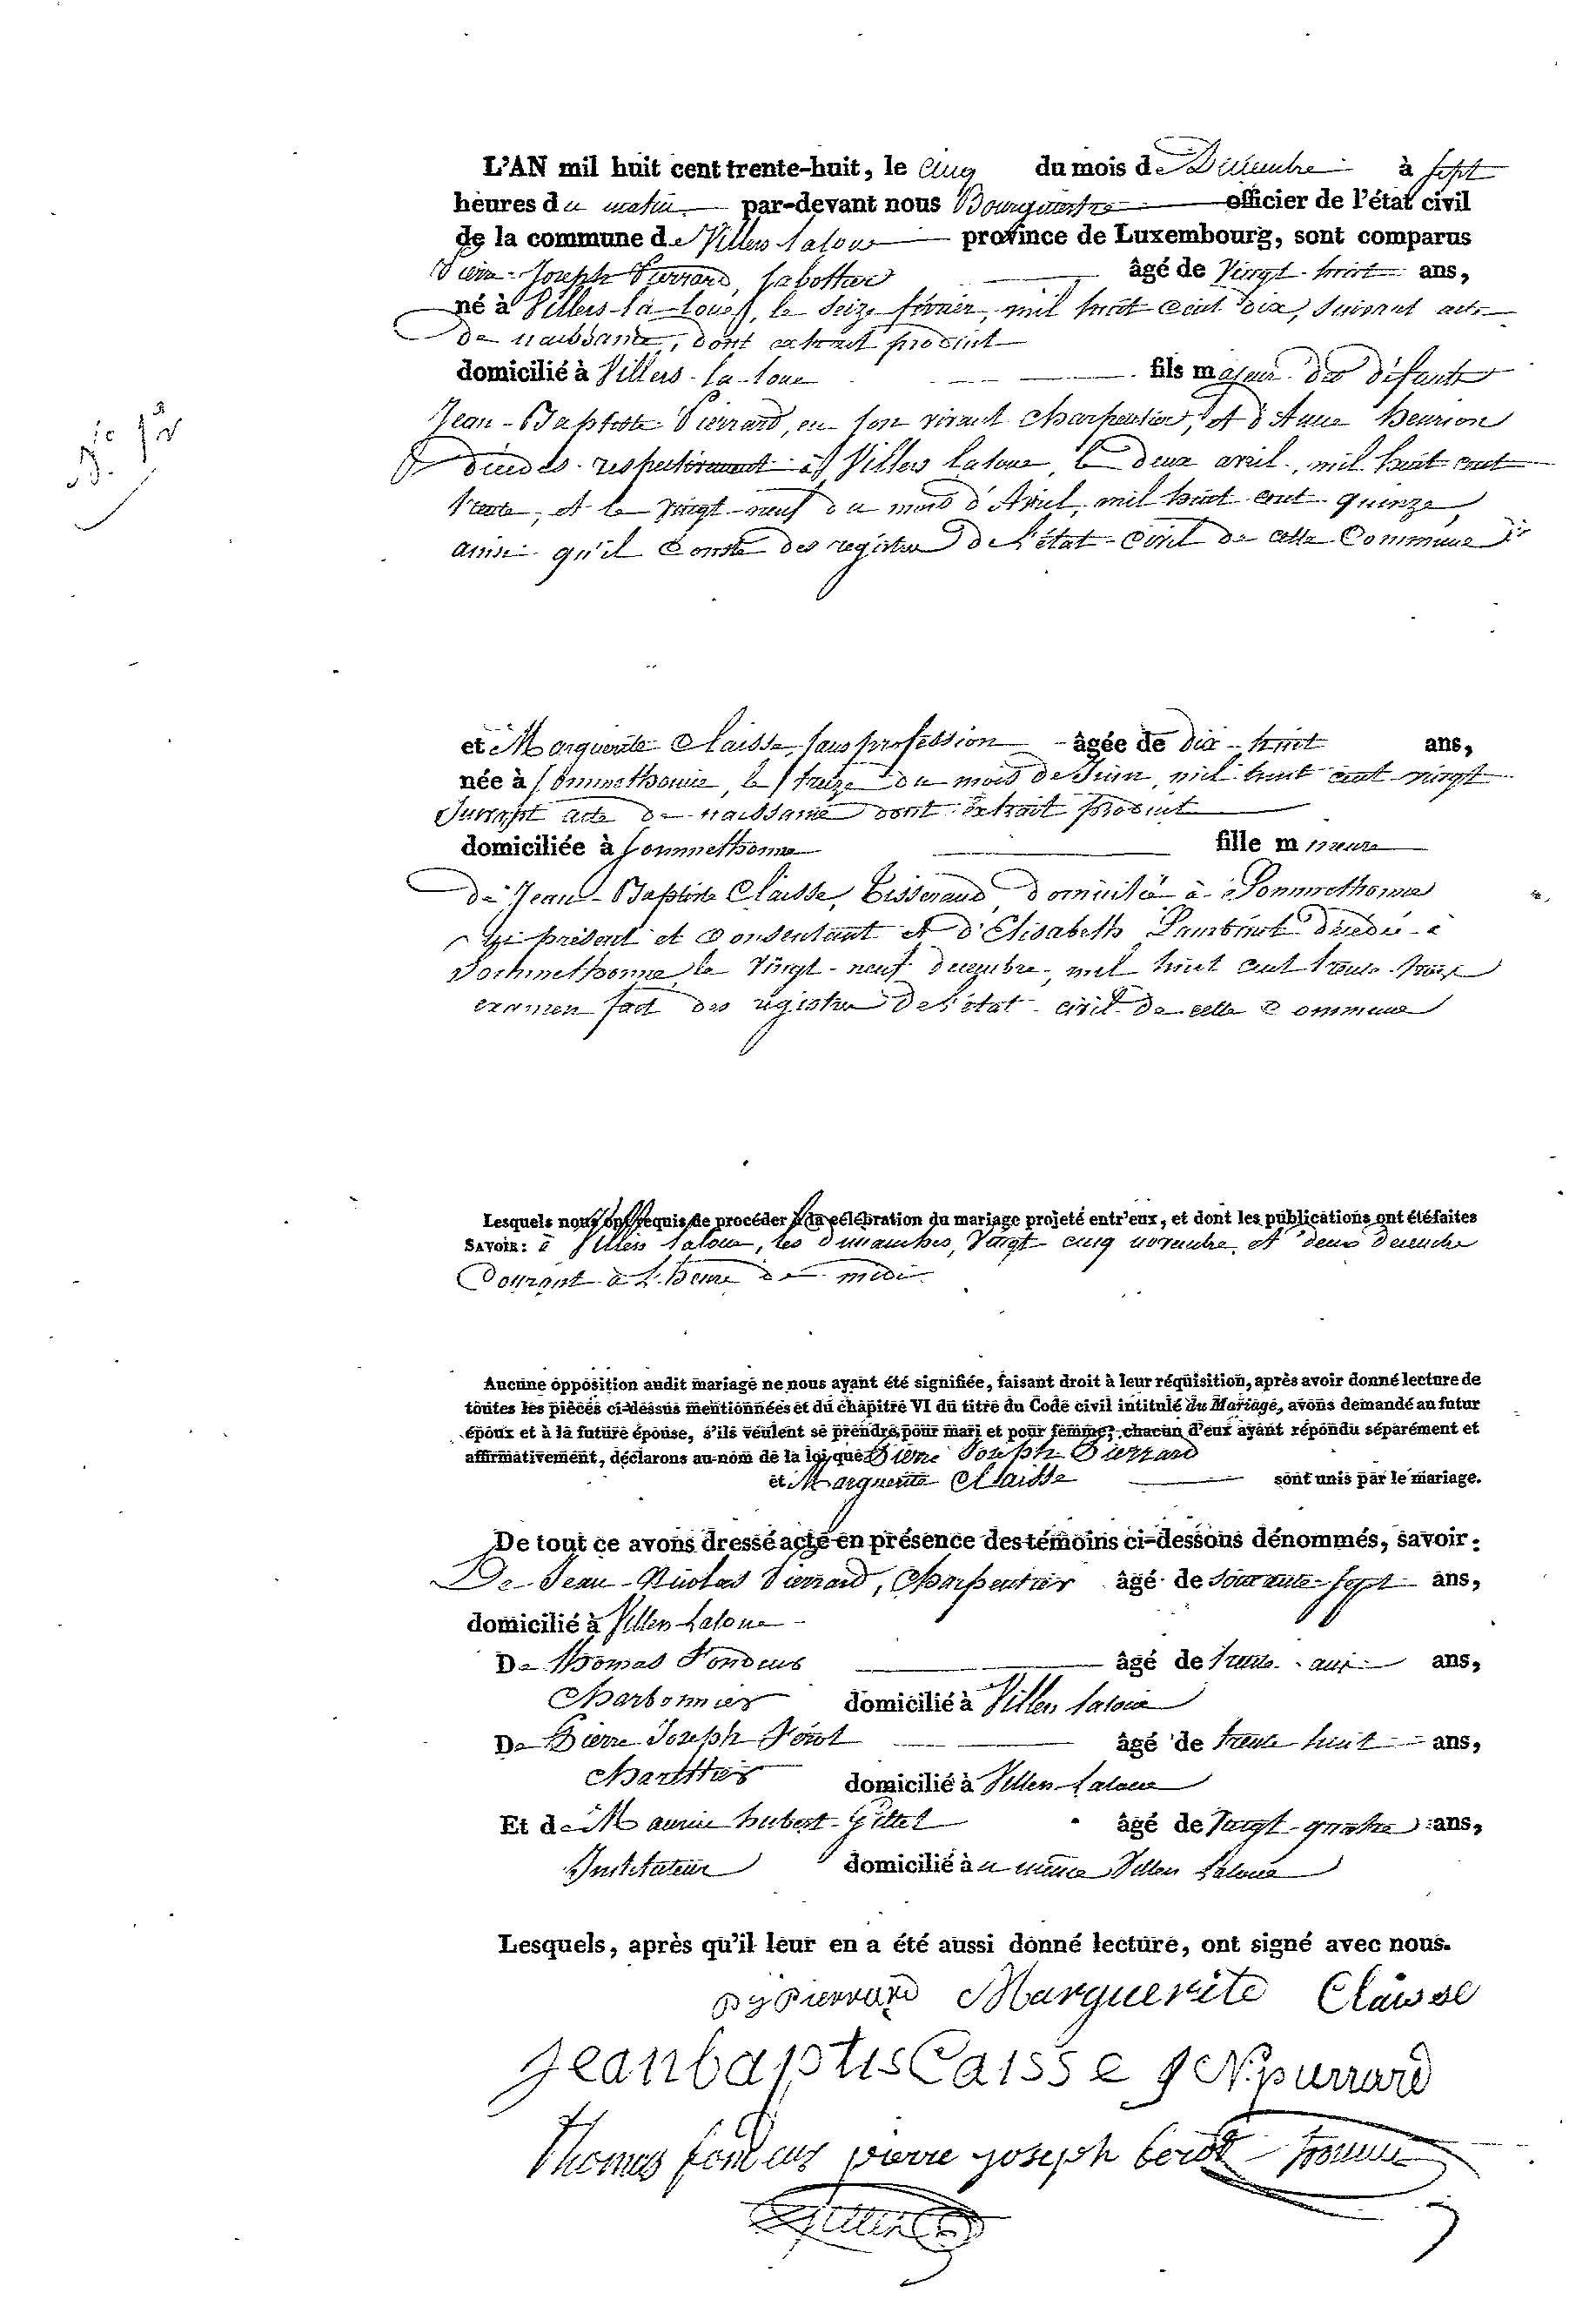 L'AN mil huit cent trente-huit, le cinq du mois de Décembre à sept
heures du matin par-devant nous Bourguestre officier de l'état civil
de la commune de Villers laloue province de Luxembourg, sont comparus
Pierre-Joseph Pierrard, sabottier âgé de vingt-huit ans,
né à Villers-la-loue, le seize février, mil huit cent dix, suivant acte
de naissance, dont extrait produit
domicilié à Villers-la-loue fils majeur des défunts
Jean-Baptiste Pierrard, en son vivant charpentier, et d'Anne henrion
décédés respectivement à Villers laloue, le deux avril, mil huit cent
trente, et le vingt-neuf du mois d'Avril, mil huit cent quinze,
ainsi qu'il conste des registres de l'état-civil de cette Commune
N° 12
et Marguerite Claisse, sans profession âgée de dix-huit ans,
née à Sommethonne, le treize du mois de Juin, mil huit cent vingt
suivant acte de naissance dont extrait produit
domiciliée à Sommethonne fille mineure
de Jean-Baptiste Claisse, Tisserand, domicilié à Sommethonne
ici présent et consentant et d'Elisabeth Lambinet décédée à
Sommethonne, le vingt-neuf décembre, mil huit cent trente-trois
examen fait des registres de l'état-civil de cette commune
Lesquels nous ont requis de procéder à la célébration du mariage projeté entr'eux, et dont les publications ont été faites
SAVOIR: à Villers laloue, les dimanches, vingt-cinq novembre, et deux décembre
courant à l'heure de midi
Aucune opposition audit mariage ne nous ayant été signifiée, faisant droit à leur réquisition, après avoir donné lecture de
toutes les pièces ci-dessus mentionnées et du chapitre VI du titre du Code civil intitulé du Mariage, avons demandé au futur
époux et à la future épouse, s'ils veulent se prendre pour mari et pour femme; chacun d'eux ayant répondu séparément et
affirmativement, déclarons au nom de la loi que Pierre Joseph Pierrard
et Marguerite Claisse sont unis par le mariage.
De tout ce avons dressé acte en présence des témoins ci-dessous dénommés, savoir:
De Jean-Nicolas Pierrard, charpentier âgé de soixante-sept ans,
domicilié à Villers-Laloue
De Thomas Fondeur âgé de trente ans,
Charbonnier domicilié à Villers laloue
De Pierre Joseph Férot âgé de trente huit ans,
domicilié à Villers-Laloue
Et de Maurice hubert Gillet âgé de vingt-quatre ans,
Instituteur domicilié au même Villers Laloue
Lesquels, après qu'il leur en a été aussi donné lecture, ont signé avec nous.
pj pierrard Marguerite Claisse
jean baptis Caisse j N. pierrard
Thomas fondeur pierre joseph